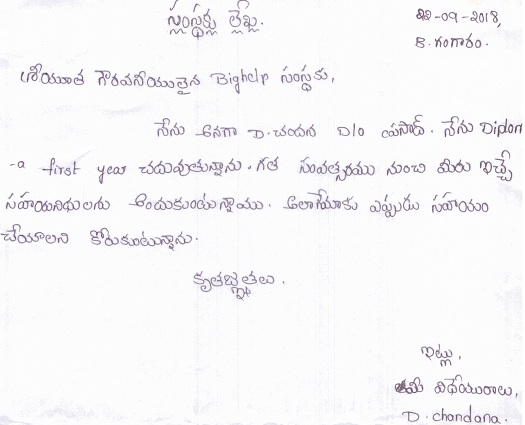 సంస్థకు లేఖ.
22-09-2018,
B. గంగారం.
శ్రీయుత గౌరవనీయులైన Bighelp సంస్థకు,
నేను అనగా D.చందన D/o ప్రసాద్. నేను Diplom
-a first year చదువుతున్నాను. గత సంవత్సరము నుంచి మీరు ఇచ్చే
సహాయనిధులను అందుకుంటున్నాము. అలాగే మాకు ఎప్పుడు సహాయం
చేయాలని కోరుకుంటున్నాను.
కృతజ్ఞతలు.
ఇట్లు,
మీ విధేయురాలు,
D. chandana.